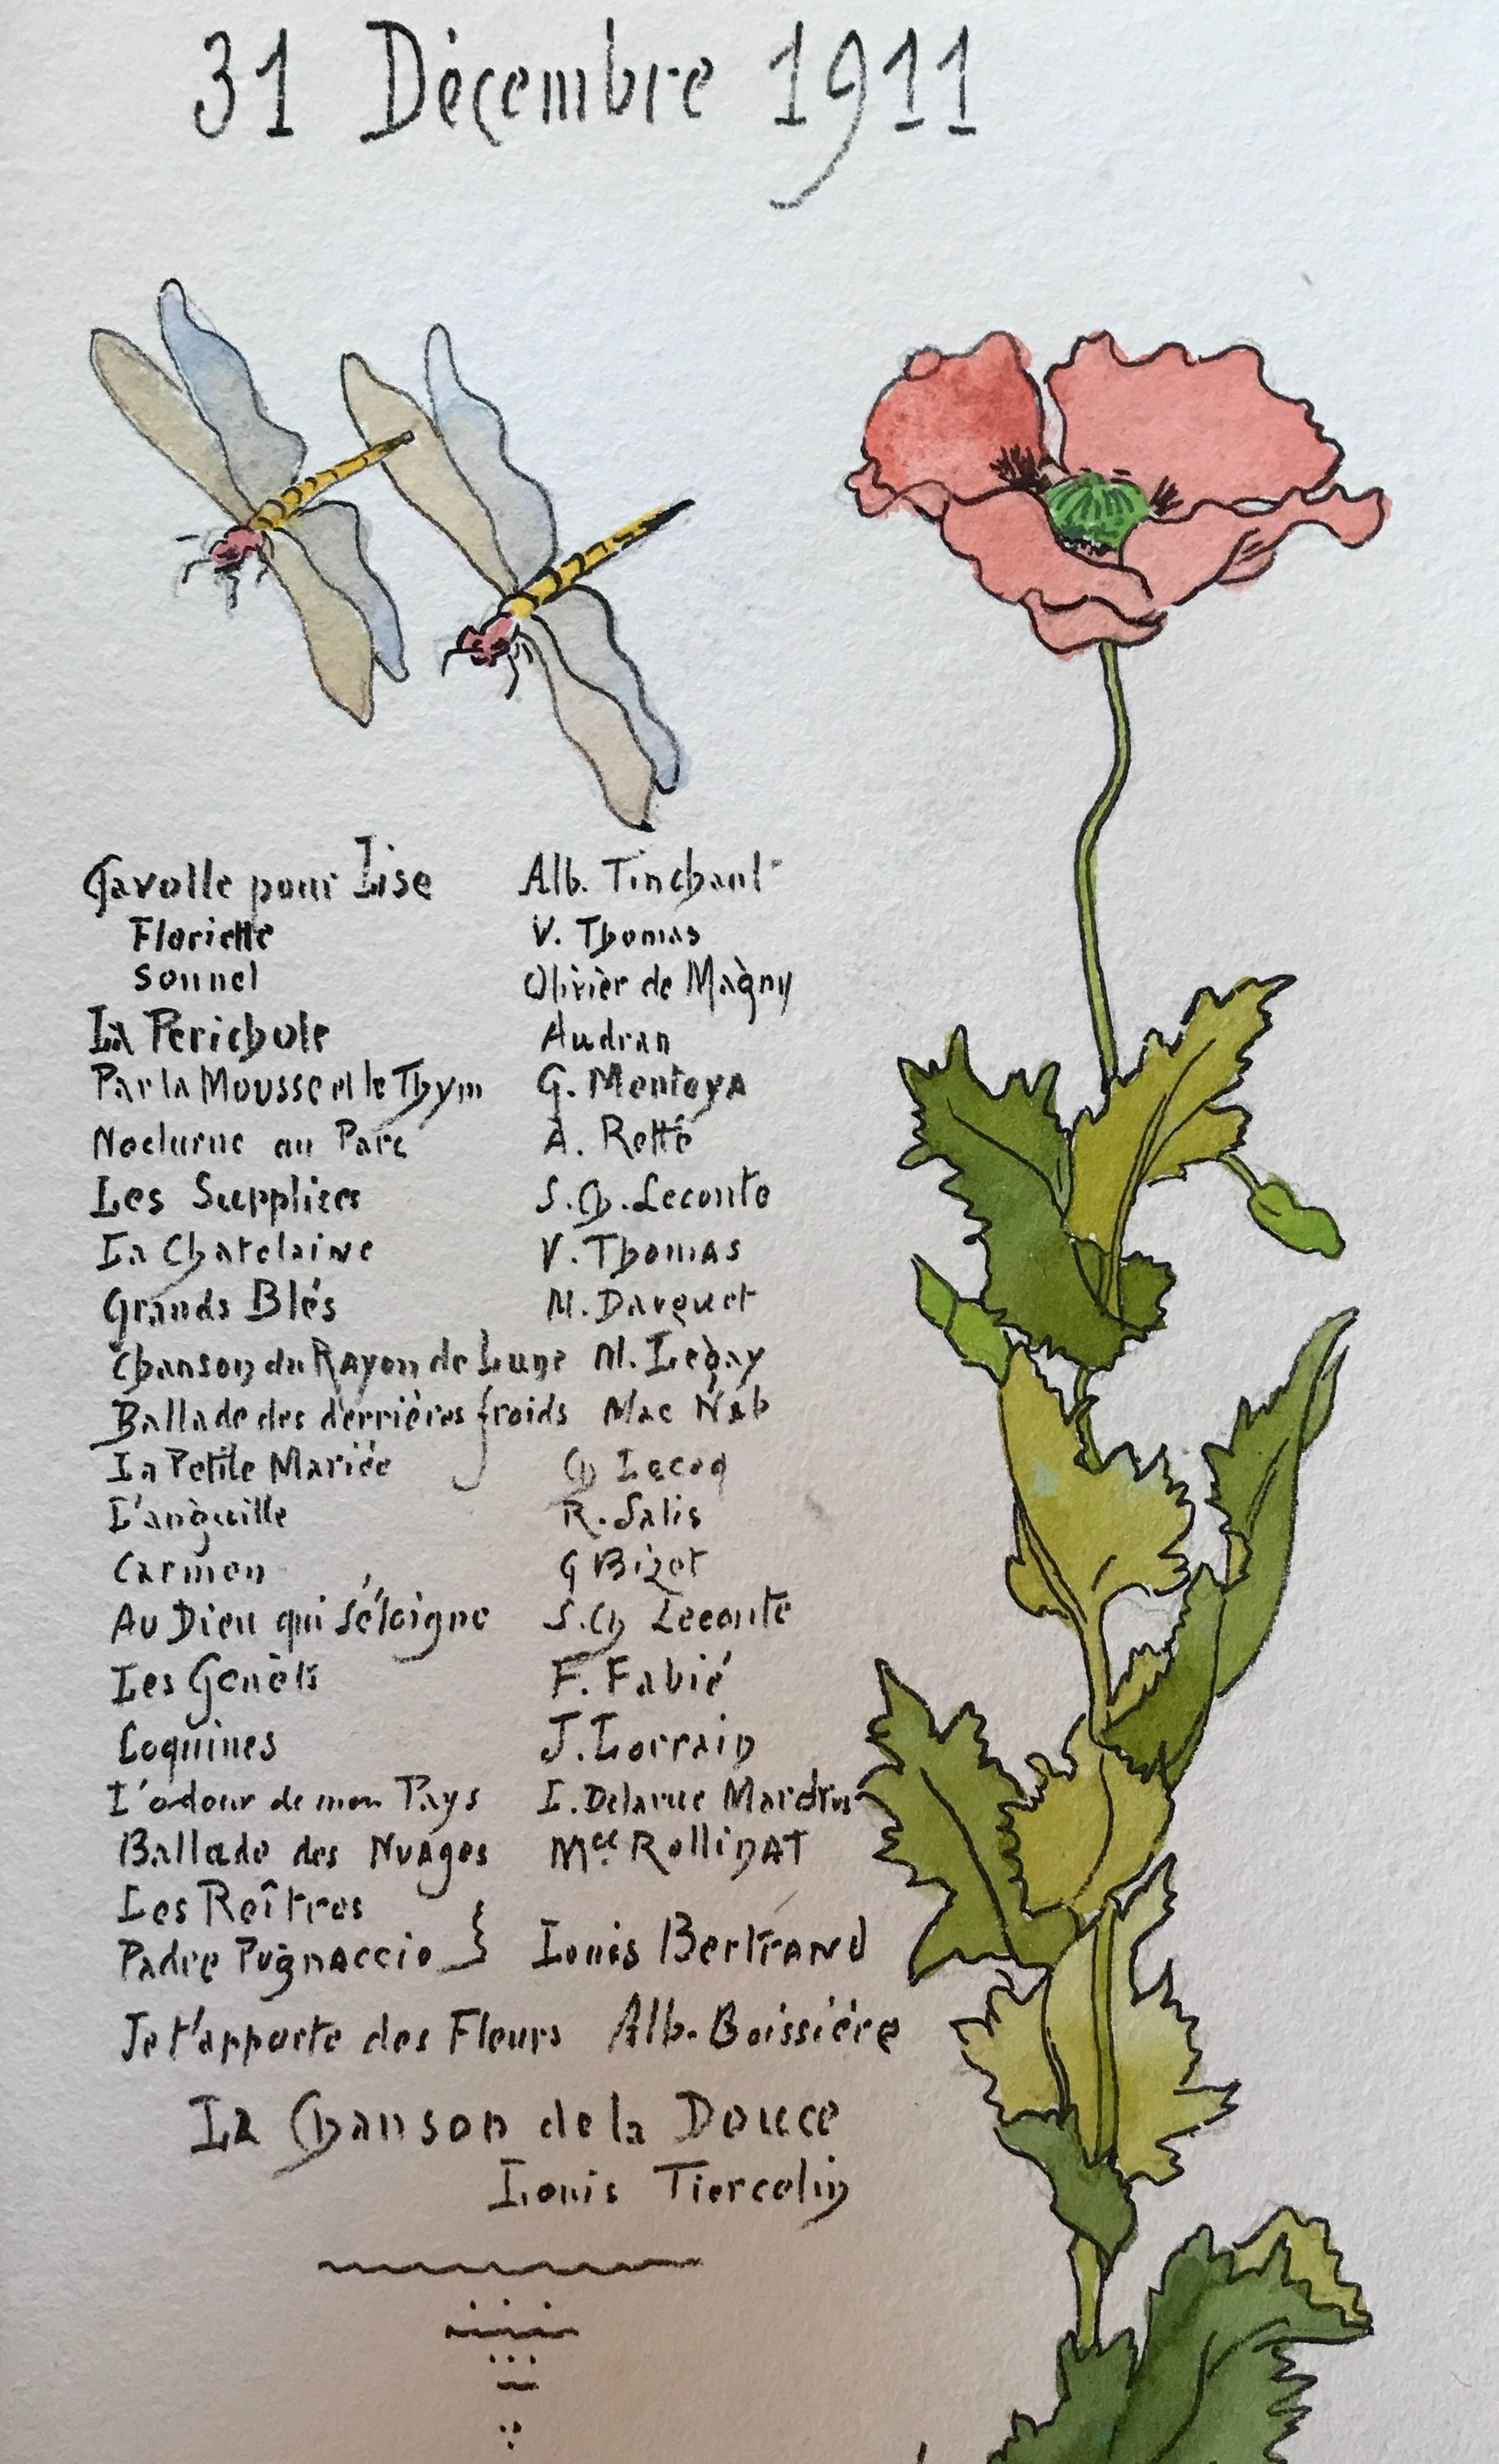 31 Décembre 1911
Gavotte pour Lise Alb. Tinchant
Floriette V. Thomas
Sonnet Olivièr de Magny
La Perichole Audran
Par la Mousse et le Thym G. Montoya
Nocturne au Parc A. Retté
Les Supplices S. Ch. Leconte
La Chatelaine V. Thomas
Grands Blés M. Dauguet
Chanson du Rayon de Lune M. Legay
Ballade des derrières froids Mac Nab
La Petite Mariée Ch Lecoq
L'anguille R. Salis
Carmen G Bizet
Au Dieu qui s'éloigne S. Ch Leconte
Les Genêts F. Fabié
Coquines J. Lorrain
L'odeur de mon Pays L. Delarue Mardrus
Ballade des Nuages Mce Rollinat
Les Reîtres
Padre Pugnaccio } Louis Bertrand
Je t'apporte des Fleurs Alb. Boissière
La Chanson de la Douce
Louis Tiercelin